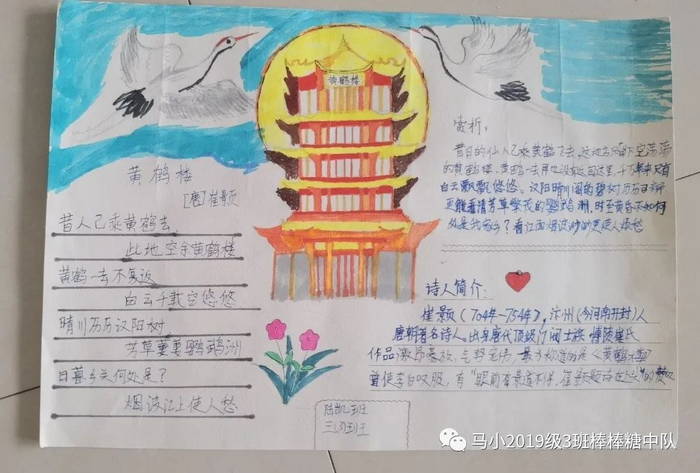 黄鹤楼
黄鹤楼
[唐]崔颢
昔人已乘黄鹤去
此地空余黄鹤楼
黄鹤一去不复返
白云千载空悠悠
晴川历历汉阳树
芳草萋萋鹦鹉洲
日暮乡关何处是?
烟波江上使人愁
赏析:
昔日的仙人已乘黄鹤飞去,这地方只留下空荡荡
的黄鹤楼,黄鹤一去再也没有返回这里,千万年来只有
白云飘飘悠悠。汉阳晴川阁的碧树历历可辨
更能看清芳草萋萋的鹦鹉洲,时至黄昏不知何
处是我家乡?看江面烟波渺渺更使人烦愁
诗人简介:
崔颢(704年-754年),汴州(今河南开封)人
唐朝著名诗人。出身唐代顶级门阀士族 博陵崔氏
作品激昂豪放,气势宏伟 最为称道的是《黄鹤楼》
曾使李白叹服,有“眼前有景道不得,崔颢题诗在上头”的赞叹
三(3)班
马小2019级3班棒棒糖中队